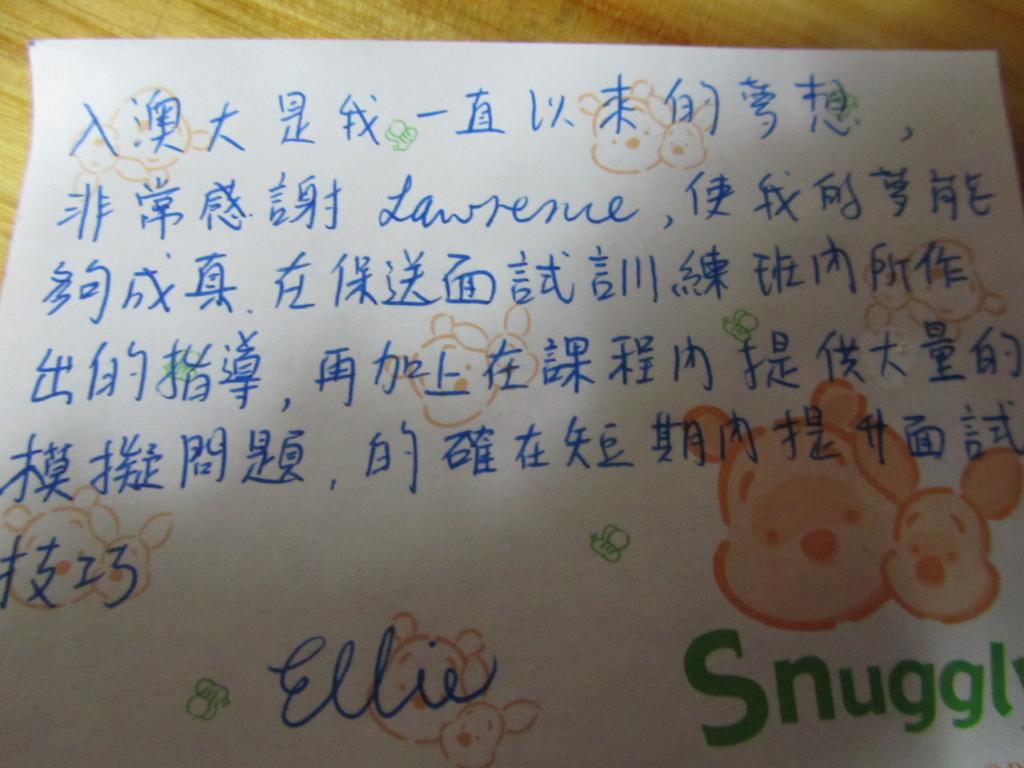 入澳大是我一直以來的夢想，
非常感謝 Lawrence, 使我的夢能
夠成真. 在保送面試訓練班內所作
出的指導, 再加上在課程內提供大量的
模擬問題, 的確在短期內提升面試
技巧
Ellie
Snuggly